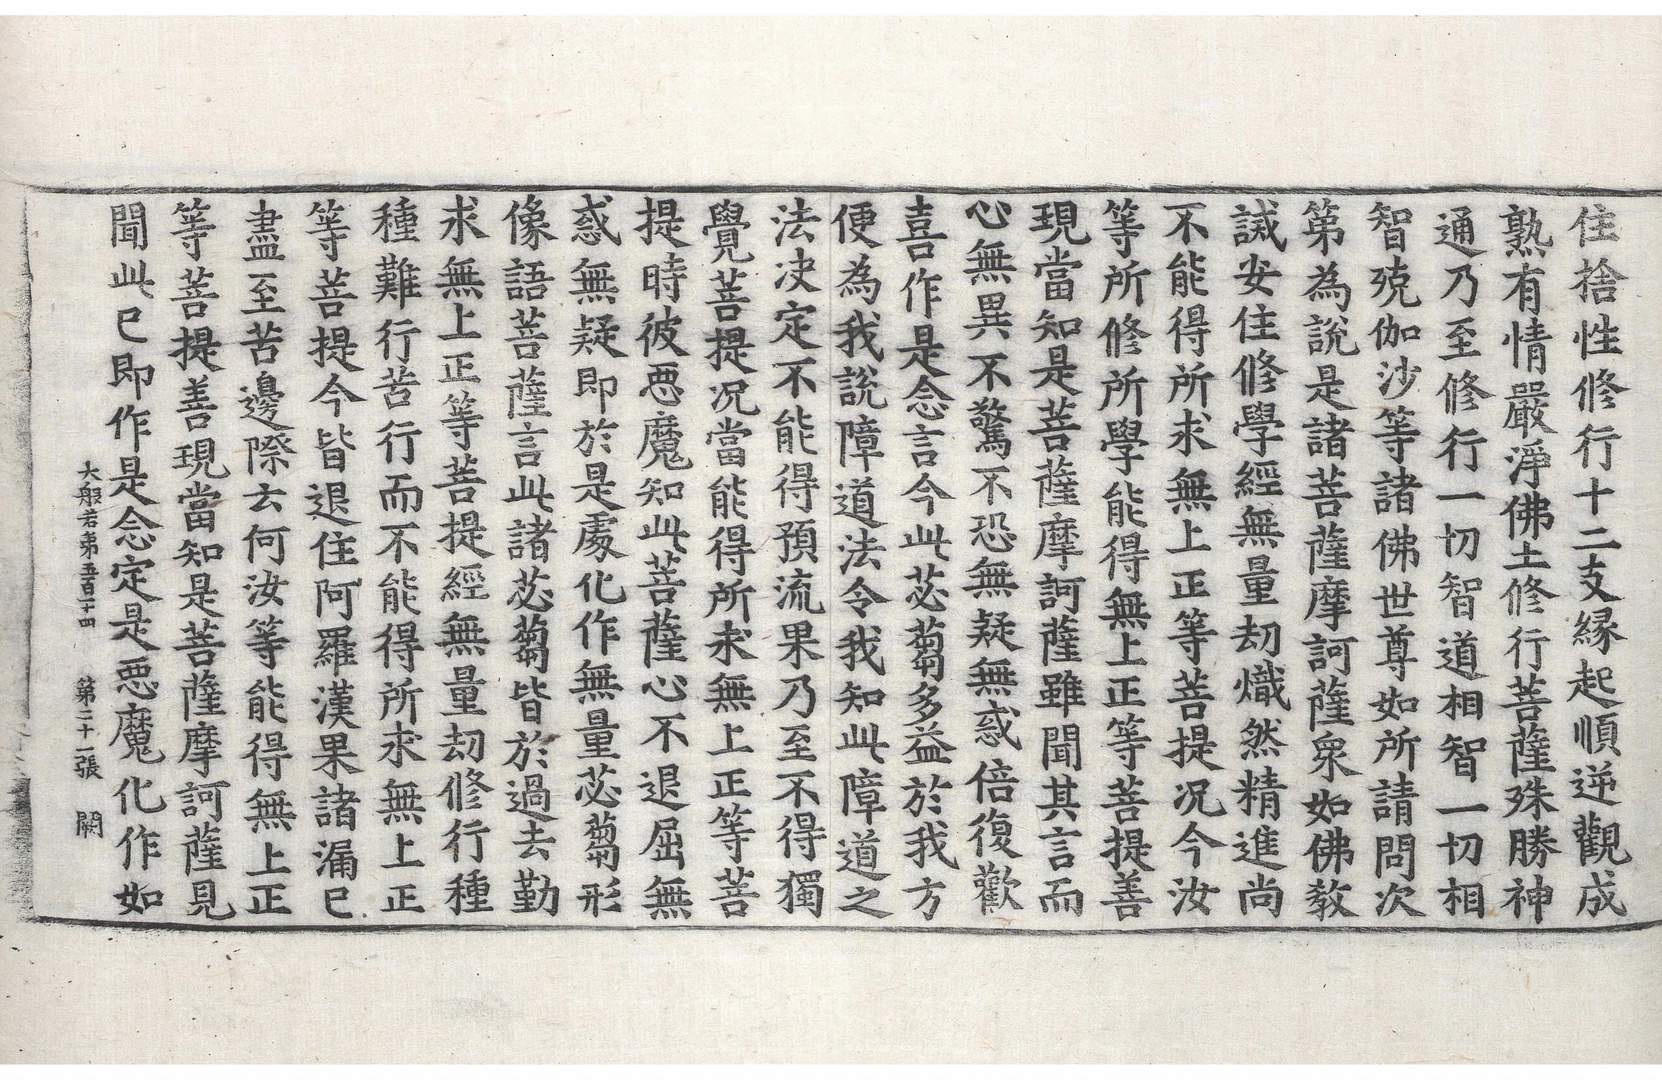 住捨性修行十二支縁起順逆觀成
熟有情嚴淨佛土修行菩薩殊勝神
通乃至修行一切智道相智一切相
智殑伽沙等諸佛世尊如所請問次
第為說是諸菩薩摩訶薩衆如佛教
誡安住修學經無量劫熾然精進尚
不能得所求無上正等菩提况今汝
等所修所學能得無上正等菩提善
現當知是菩薩摩訶薩雖聞其言而
心無異不驚不恐無疑無惑倍復歡
喜作是念言今此苾蒭多益於我方
便為我說障道法令我知此障道之
法决定不能得預流果乃至不得獨
覺菩提况當能得所求無上正等菩
提時彼惡魔知此菩薩心不退屈無
惑無疑即於是處化作無量苾蒭形
像語菩薩言此諸苾蒭皆於過去勤
求無上正等菩提經無量劫修行種
種難行苦行而不能得所求無上正
等菩提今皆退住阿羅漢果諸漏已
盡至苦邊際云何汝等能得無上正
等菩提善現當知是菩薩摩訶薩見
聞此已即作是念定是惡魔化作如
大般若第五百十四 第二十一張 闕